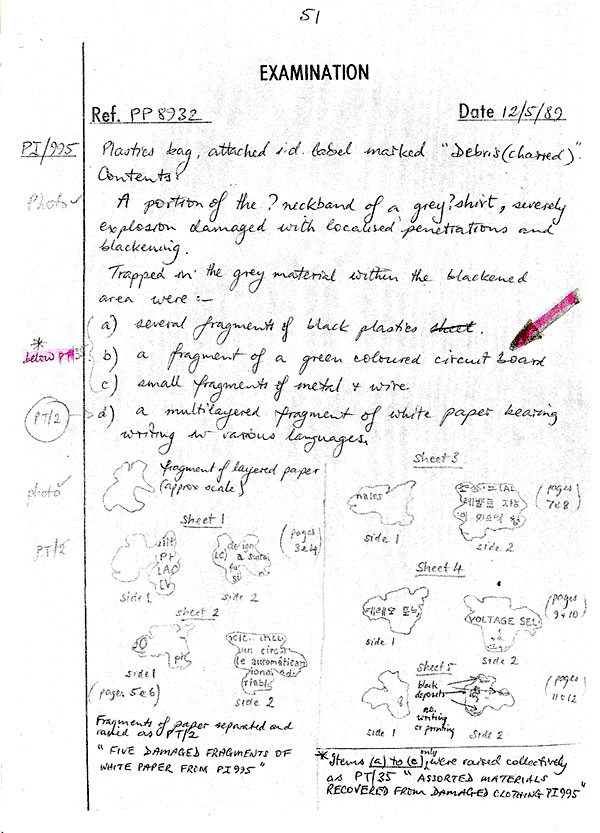 51
EXAMINATION
Ref. PP 8932
Date 12/5/89
PI/995
Plastics bag, attached i.d. label marked "Debris (charred)".
Contents:
Photo ✓
A portion of the ? neckband of a grey ? shirt, severely
explosion damaged with localised penetrations and
blackening.
Trapped in the grey material within the blackened
area were :-
a) several fragments of black plastics sheet.
*
below PT
b) a fragment of a green coloured circuit board
c) small fragments of metal & wire
PT/2
d) a multilayered fragment of white paper bearing
writing in various languages.
photo ✓
fragment of layered paper
(approx scale)
PT/2
Sheet 1
(pages
3 & 4)
side 1
side 2
sheet 2
ph
side 1
(pages 5 & 6)
un circu
te automátican
riable
side 2
Fragments of paper separated and
raised as PT/2
"FIVE DAMAGED FRAGMENTS OF
WHITE PAPER FROM PI 995"
Sheet 3
nales
side 1
side 2
(pages
7 & 8)
Sheet 4
side 1
VOLTAGE SEL
side 2
(pages
9 & 10)
Sheet 5
black
deposits
no
writing
or printing
side 1
side 2
(pages
11 & 12)
* Items (a) to (c) only, were raised collectively
as PT/35 "ASSORTED MATERIALS
RECOVERED FROM DAMAGED CLOTHING PI 995"